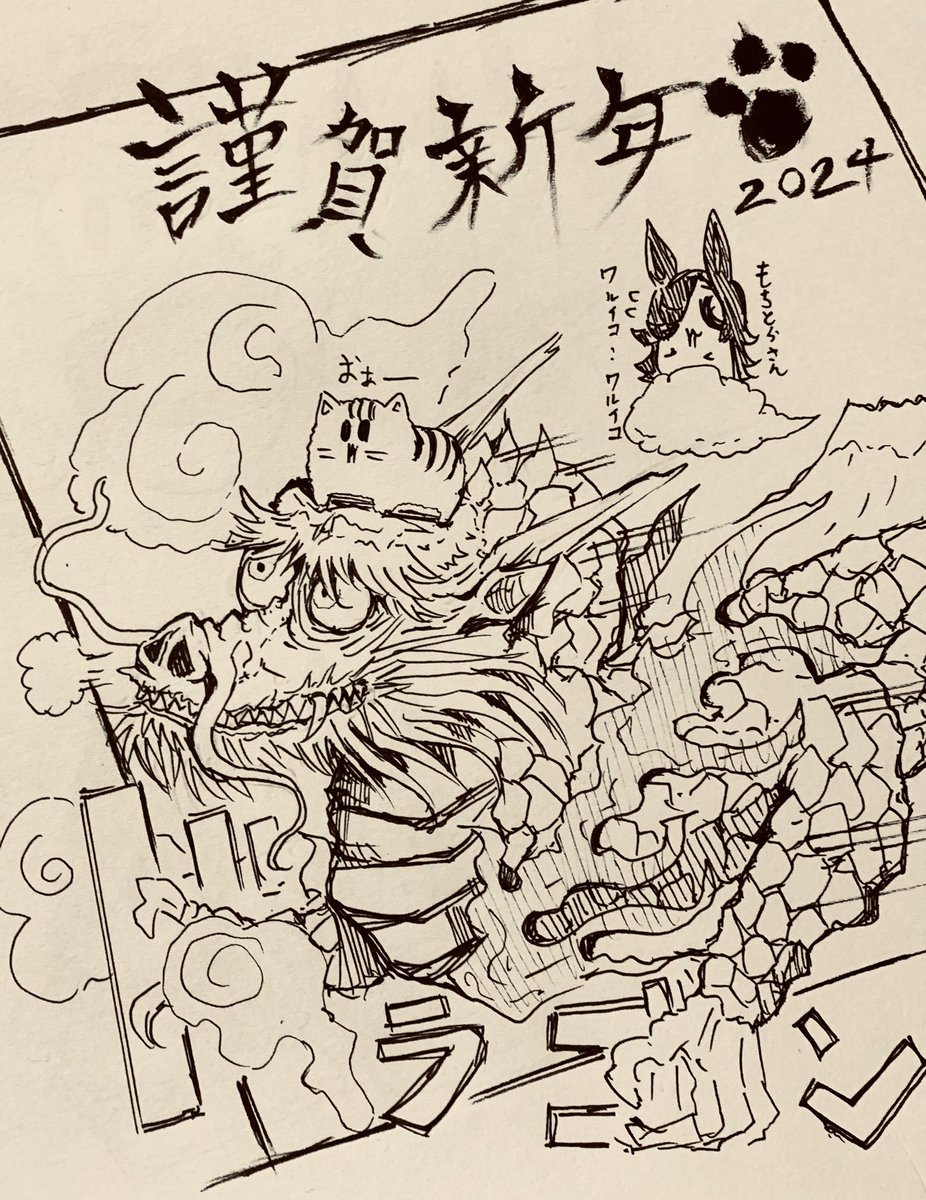 謹賀新年
2024
おぉー
もちとらさん
ワルイコ:ワルイコ
ドラゴン